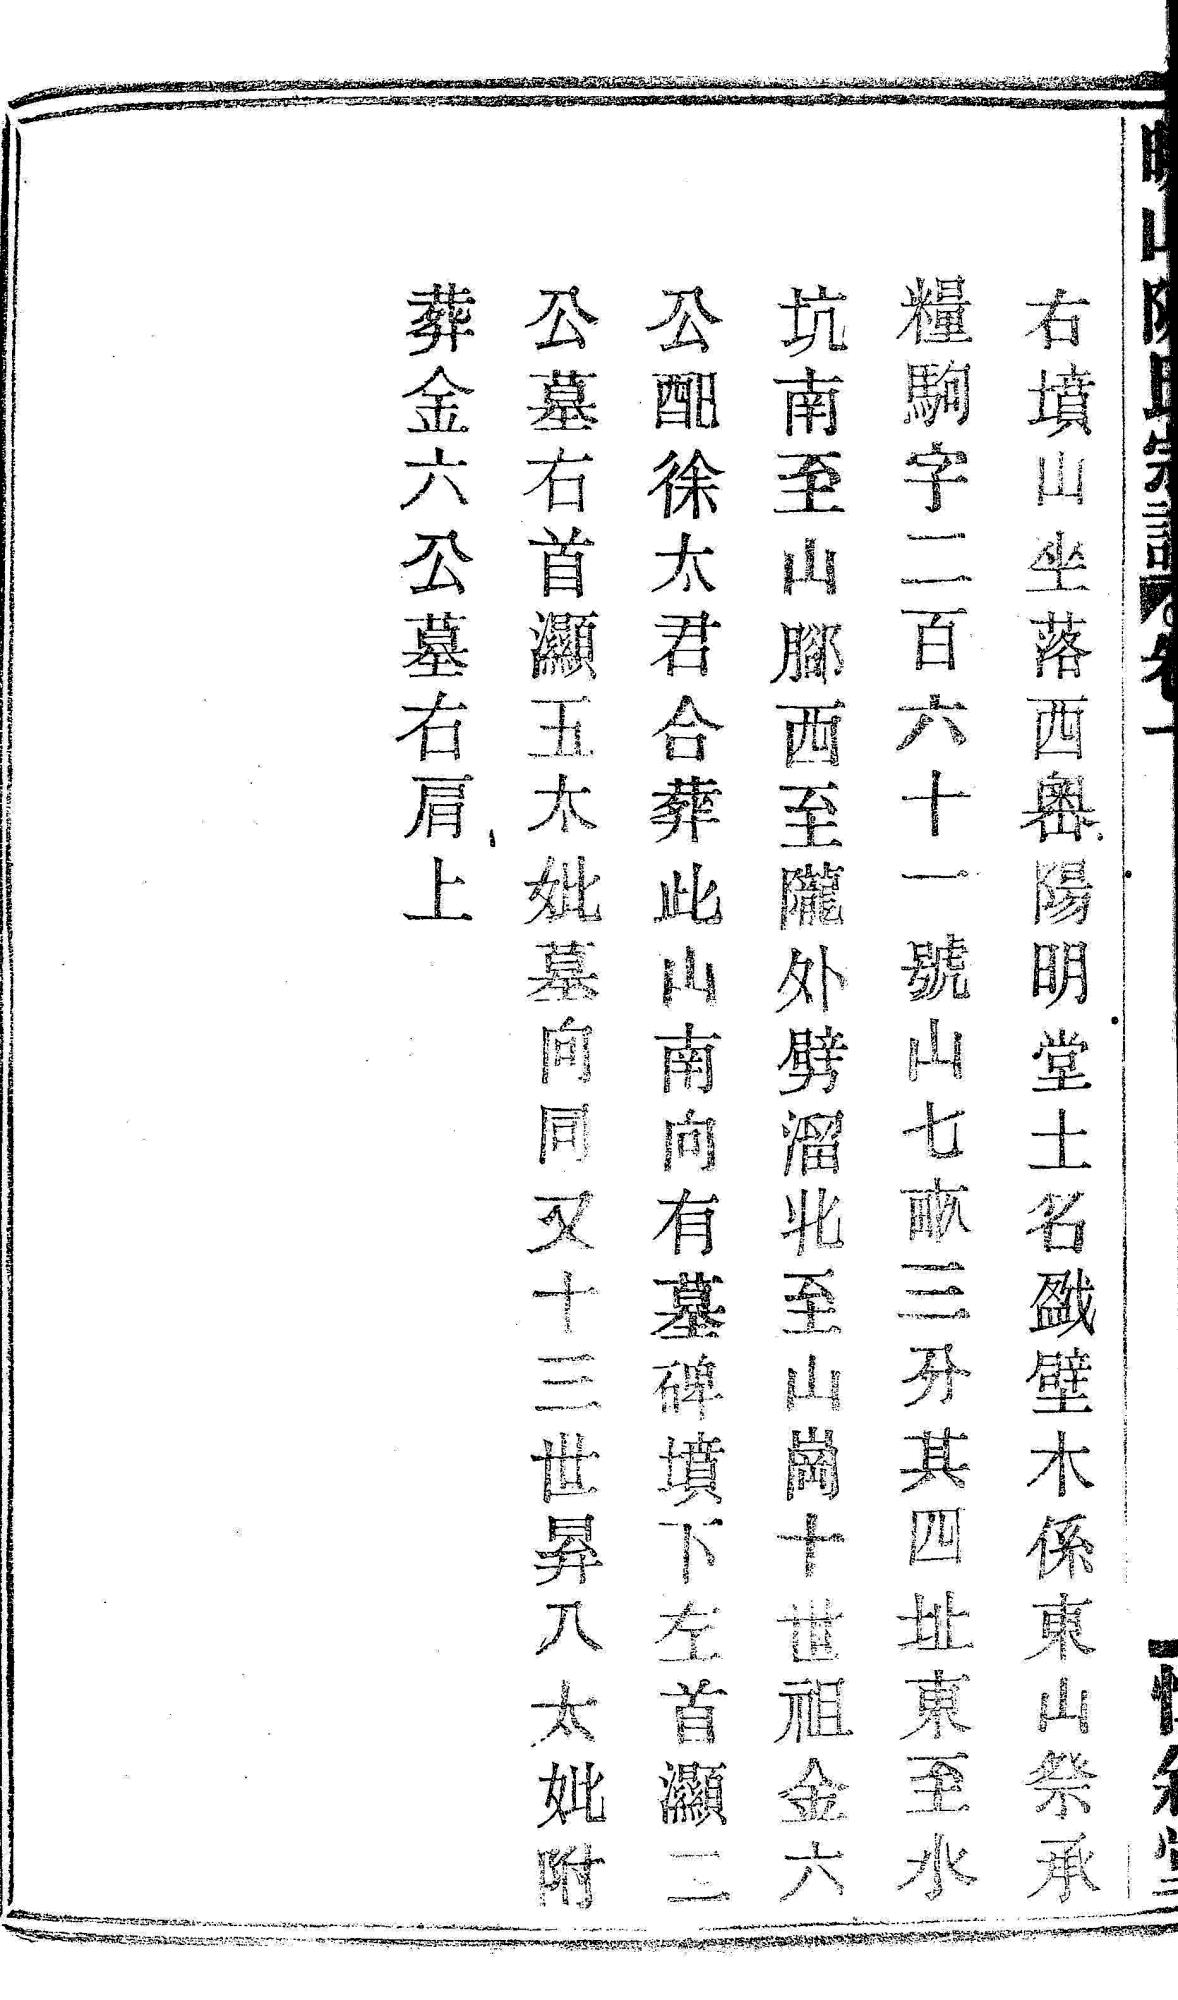 右墳山坐落西嶴陽明堂土名戤壁木係東山祭承
糧駒字二百六十一號山七畝三分其四址東至水
坑南至山腳西至隴外劈溜北至山崗十世祖金六
公配徐太君合葬此山南向有墓碑墳下左首灝二
公墓右首灝五太妣墓向同又十三世昇八太妣附
葬金六公墓右肩上